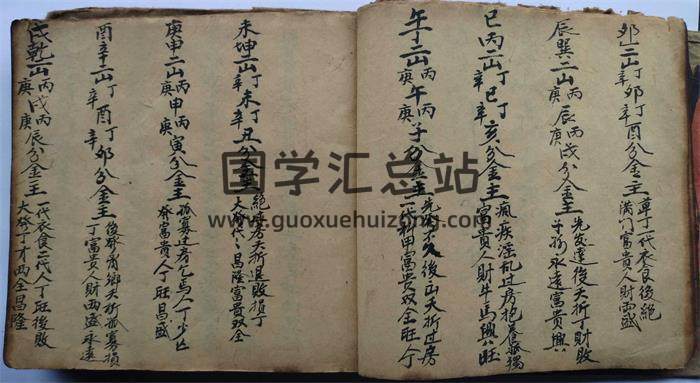 卯二山丁辛卯丁辛酉分金主
單丁一代衣食後絕
滿門富貴人財兩盛
辰巽二山丙庚辰丙庚戌分金主
先发達後夭折丁財敗
子孫永遠富貴興
巳丙二山丁辛巳丁辛亥分金主
瘋疾淫乱过房抱養孤独
富貴人財牛馬興旺
午丁二山丙庚午丙庚子分金主
先不久後出夭折过房
一代科甲富貴双全旺丁
未坤二山丁辛未丁辛丑分金主
絕夭折退敗損丁
大發昌隆富貴双全
庚申二山丙庚申丙庚寅分金主
孤寡过房人丁少亡
發富貴人丁旺昌盛
酉辛二山丁辛酉丁辛卯分金主
後發鄉夭折孤寡損
丁富貴人財兩盛永遠
戌乾二山丙庚戌丙庚辰分金主
一代衣食二代人丁旺後敗
大發丁才兩全昌隆
国学汇总站
www.guoxuehuizong.com